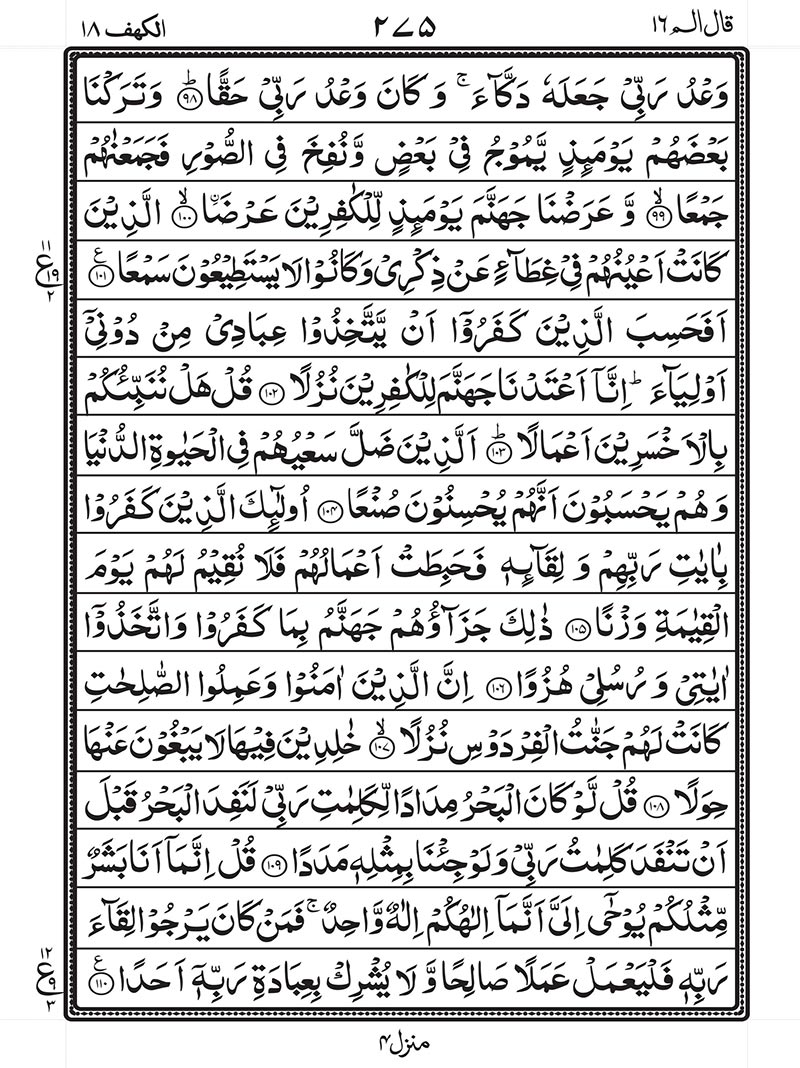 قال الم ١٦ ٢٧٥ الكهف ١٨
وَعْدُ رَبِّیْ جَعَلَهٗ دَكَّآءَ ۚ وَ كَانَ وَعْدُ رَبِّیْ حَقًّا ؕ﴿۹۸﴾ وَ تَرَكْنَا
بَعْضَهُمْ یَوْمَىِٕذٍ یَّمُوْجُ فِیْ بَعْضٍ وَّ نُفِخَ فِی الصُّوْرِ فَجَمَعْنٰهُمْ
جَمْعًا ۙ﴿۹۹﴾ وَّ عَرَضْنَا جَهَنَّمَ یَوْمَىِٕذٍ لِّلْكٰفِرِیْنَ عَرْضَا ۙ﴿۱۰۰﴾ الَّذِیْنَ
كَانَتْ اَعْیُنُهُمْ فِیْ غِطَآءٍ عَنْ ذِكْرِیْ وَ كَانُوْا لَا یَسْتَطِیْعُوْنَ سَمْعًا ﴿۱۰۱﴾ع
١١ ع ١٩ ٢
اَفَحَسِبَ الَّذِیْنَ كَفَرُوْۤا اَنْ یَّتَّخِذُوْا عِبَادِیْ مِنْ دُوْنِیْۤ
اَوْلِیَآءَ ؕ اِنَّاۤ اَعْتَدْنَا جَهَنَّمَ لِلْكٰفِرِیْنَ نُزُلًا ﴿۱۰۲﴾ قُلْ هَلْ نُنَبِّئُكُمْ
بِالْاَخْسَرِیْنَ اَعْمَالًا ؕ﴿۱۰۳﴾ اَلَّذِیْنَ ضَلَّ سَعْیُهُمْ فِی الْحَیٰوةِ الدُّنْیَا
وَ هُمْ یَحْسَبُوْنَ اَنَّهُمْ یُحْسِنُوْنَ صُنْعًا ﴿۱۰۴﴾ اُولٰٓىِٕكَ الَّذِیْنَ كَفَرُوْا
بِاٰیٰتِ رَبِّهِمْ وَ لِقَآىِٕهٖ فَحَبِطَتْ اَعْمَالُهُمْ فَلَا نُقِیْمُ لَهُمْ یَوْمَ
الْقِیٰمَةِ وَزْنًا ﴿۱۰۵﴾ ذٰلِكَ جَزَآؤُهُمْ جَهَنَّمُ بِمَا كَفَرُوْا وَ اتَّخَذُوْۤا
اٰیٰتِیْ وَ رُسُلِیْ هُزُوًا ﴿۱۰۶﴾ اِنَّ الَّذِیْنَ اٰمَنُوْا وَ عَمِلُوا الصّٰلِحٰتِ
كَانَتْ لَهُمْ جَنّٰتُ الْفِرْدَوْسِ نُزُلًا ۙ﴿۱۰۷﴾ خٰلِدِیْنَ فِیْهَا لَا یَبْغُوْنَ عَنْهَا
حِوَلًا ﴿۱۰۸﴾ قُلْ لَّوْ كَانَ الْبَحْرُ مِدَادًا لِّكَلِمٰتِ رَبِّیْ لَنَفِدَ الْبَحْرُ قَبْلَ
اَنْ تَنْفَدَ كَلِمٰتُ رَبِّیْ وَ لَوْ جِئْنَا بِمِثْلِهٖ مَدَدًا ﴿۱۰۹﴾ قُلْ اِنَّمَاۤ اَنَا بَشَرٌ
مِّثْلُكُمْ یُوْحٰۤى اِلَیَّ اَنَّمَاۤ اِلٰهُكُمْ اِلٰهٌ وَّاحِدٌ ۚ فَمَنْ كَانَ یَرْجُوْا لِقَآءَ
رَبِّهٖ فَلْیَعْمَلْ عَمَلًا صَالِحًا وَّ لَا یُشْرِكْ بِعِبَادَةِ رَبِّهٖۤ اَحَدًا ﴿۱۱۰﴾ع
١٢ ع ٩ ٣
منزل ۴